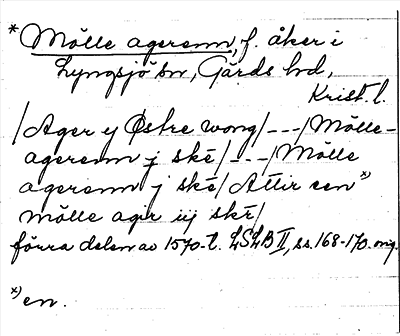 * Mölle agerenn, f. åker i
Lyngsjö sn, Gärds hd,
Krist. l.
/Ager y Østre wong/---/Mölle-
agerenn j ské/---/Mölle
agerenn j ské/Attir een *)
mölle agir iij ské/
förra delen av 1570-t. LSLB II, ss. 168-170. orig.
*) en.